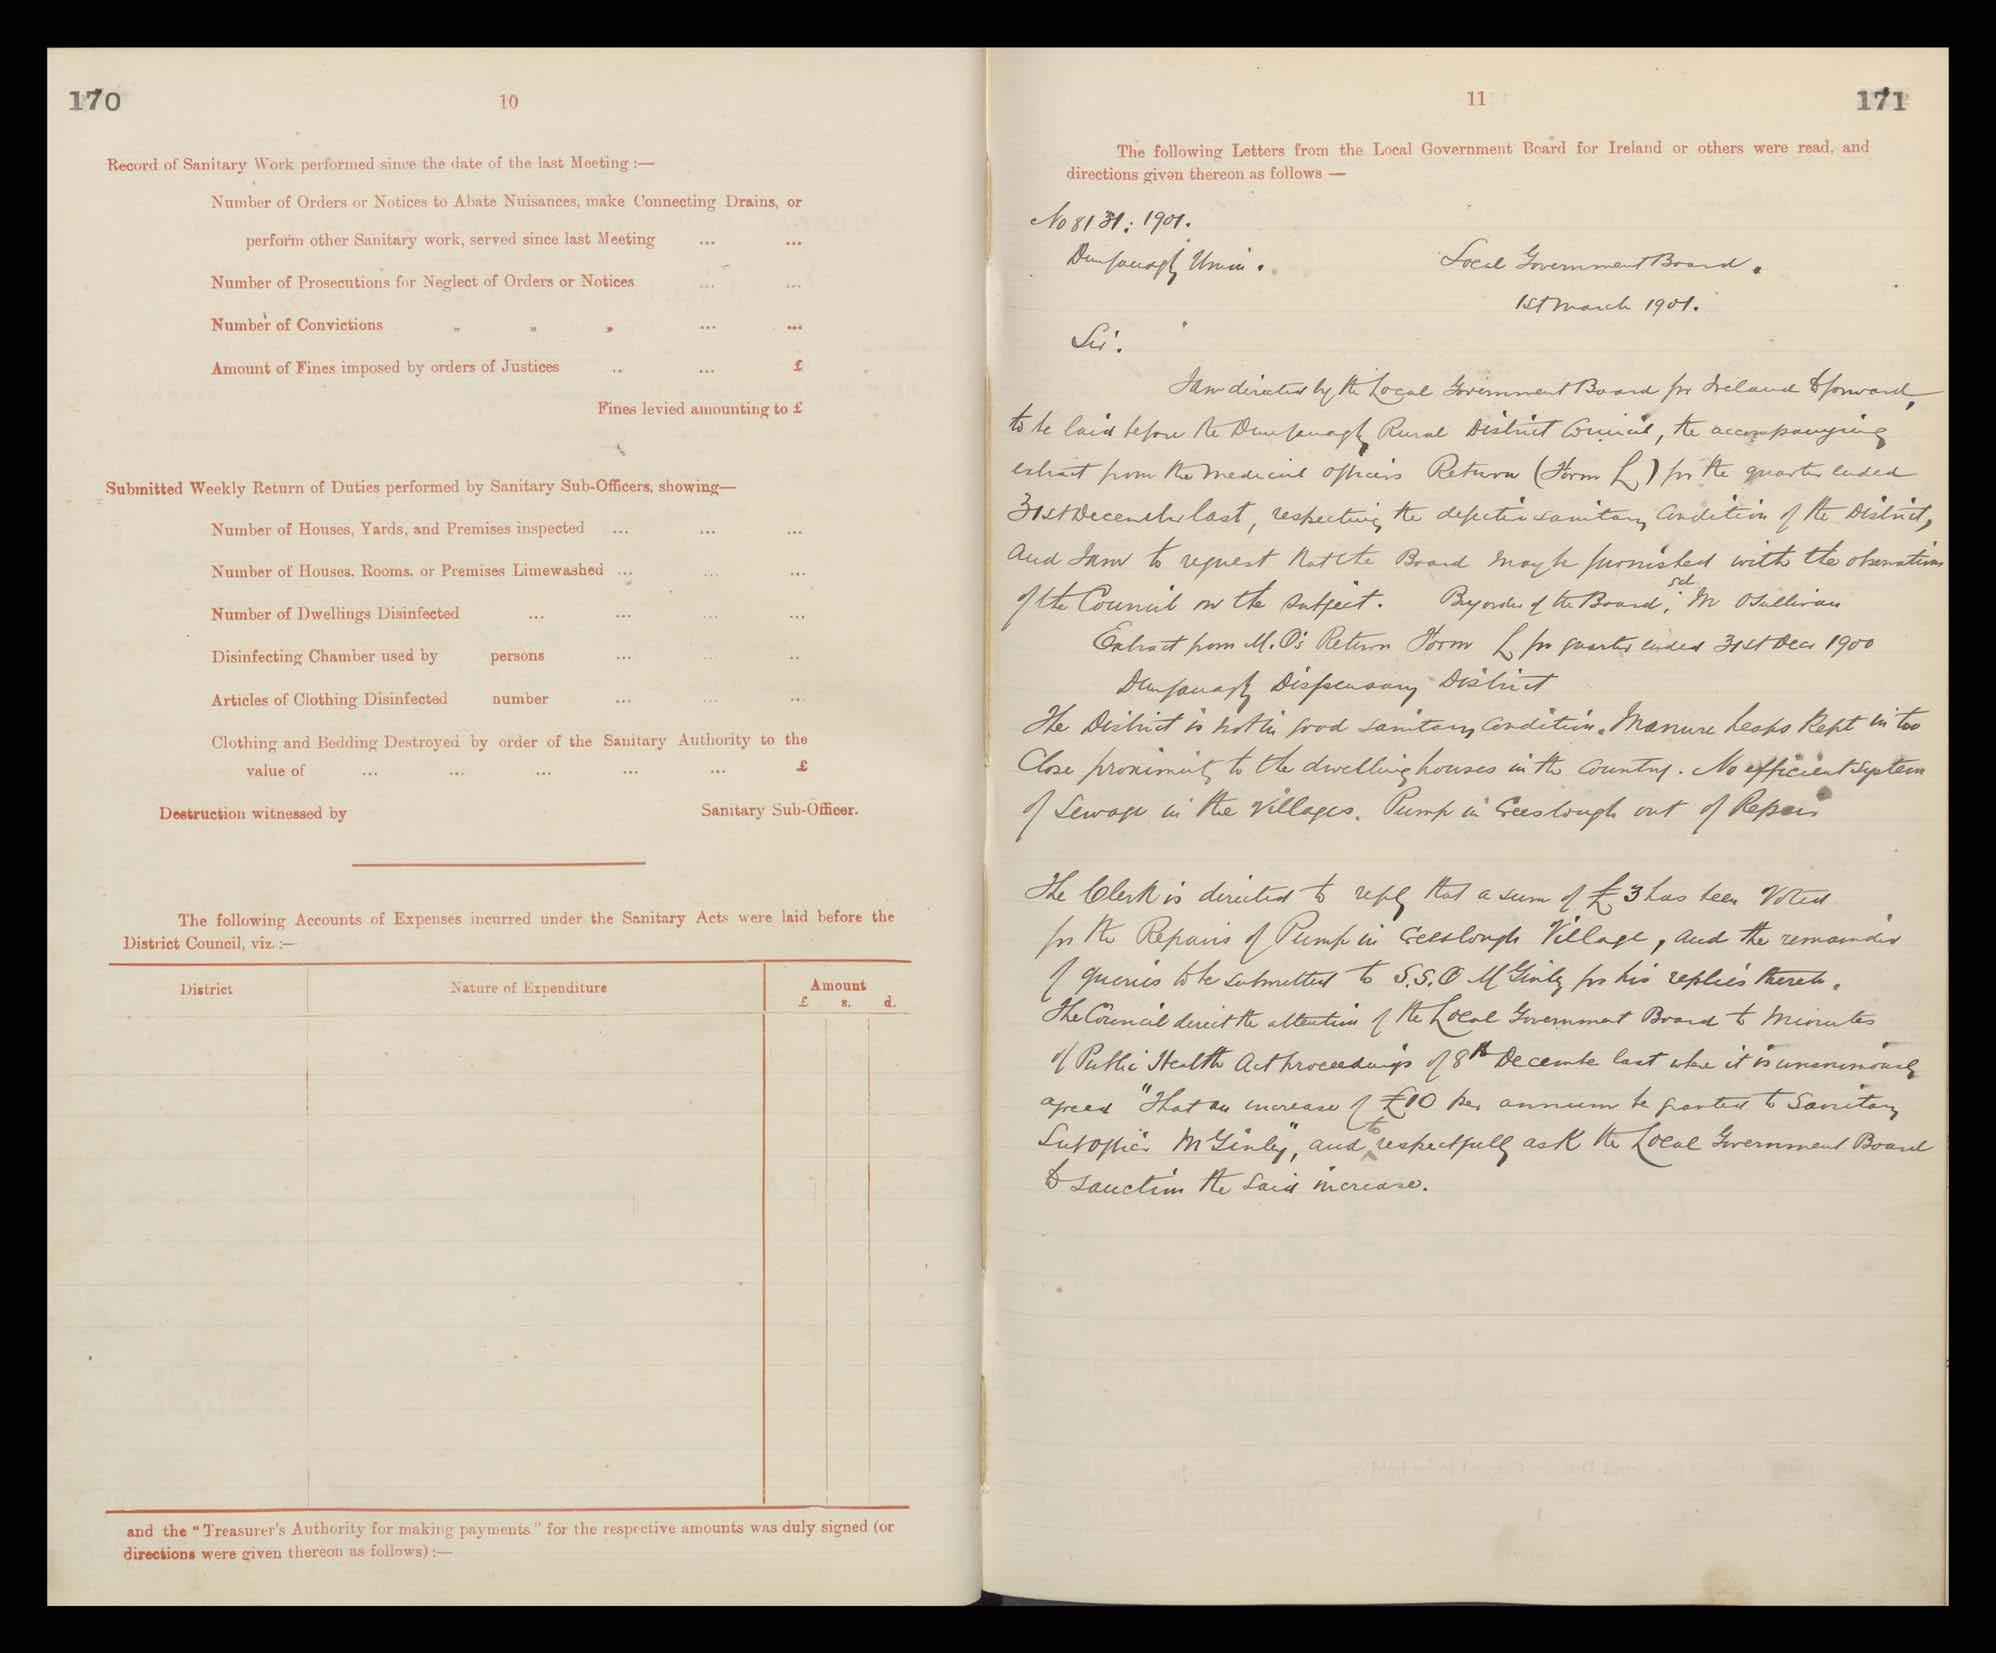 170
10
Record of Sanitary Work performed since the date of the last Meeting :—
Number of Orders or Notices to Abate Nuisances, make Connecting Drains, or
perform other Sanitary work, served since last Meeting ... ...
Number of Prosecutions for Neglect of Orders or Notices ... ...
Number of Convictions „ „ „ ... ...
Amount of Fines imposed by orders of Justices .. ... £
Fines levied amounting to £
Submitted Weekly Return of Duties performed by Sanitary Sub-Officers, showing—
Number of Houses, Yards, and Premises inspected ... ... ...
Number of Houses, Rooms, or Premises Limewashed ... ... ...
Number of Dwellings Disinfected ... ... ... ...
Disinfecting Chamber used by persons ... ... ..
Articles of Clothing Disinfected number ... ... ...
Clothing and Bedding Destroyed by order of the Sanitary Authority to the
value of ... ... ... ... ... £
Destruction witnessed by Sanitary Sub-Officer.
The following Accounts of Expenses incurred under the Sanitary Acts were laid before the
District Council, viz. :—
District Nature of Expenditure Amount
£ s. d.
and the "Treasurer's Authority for making payments" for the respective amounts was duly signed (or
directions were given thereon as follows) :—
11
171
The following Letters from the Local Government Board for Ireland or others were read, and
directions given thereon as follows —
No 8131: 1901.
Dunfanaghy Union. Local Government Board.
1st March 1901.
Sir.
I am directed by the Local Government Board for Ireland to forward,
to be laid before the Dunfanaghy Rural District Council, the accompanying
extract from the Medical Officers Return (Form L) for the quarter ended
31st December last, respecting the defective sanitary Condition of the District,
and I am to request that the Board may be furnished with the observations
of the Council on the subject. By order of the Board, sd M OSullivan
Extract from M.O's Return Form L for quarter ended 31st Decr 1900
Dunfanaghy Dispensary District
The District is not in good sanitary condition. Manure heaps kept in too
Close proximity to the dwelling houses in the Country. No efficient system
of Sewage in the Villages. Pump in Creeslough out of Repair
The Clerk is directed to reply that a sum of £3 has been Voted
for the Repairs of Pump in Creeslough Village, and the remainder
of queries to be submitted to S.S.O McGinley for his replies thereto.
The Council direct the attention of the Local Government Board to Minutes
of Public Health Act Proceedings of 8th December last where it is unanimously
agreed "That an increase of £10 per annum be granted to Sanitary
Subofficer McGinley", and to respectfully ask the Local Government Board
to sanction the said increase.